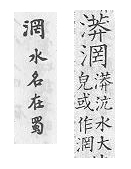 㴏水名在蜀
漭㴏
漭沆水大
皃或作㴏